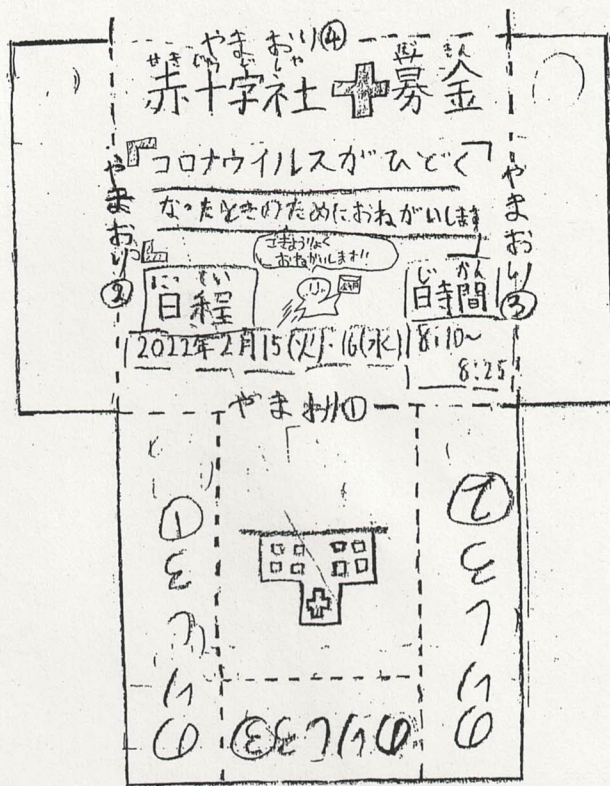 やまおり④
せきじゅうじしゃ ぼきん
赤十字社 募金
「コロナウイルスがひどく
なったときのためにおねがいします」
ごきょうりょく
おねがいします!!
やまおり②
やまおり③
にってい
日程
じかん
時間
2022年2月15(火)・16(水)
8:10~
8:25
やまおり①
のりしろ①
のりしろ②
のりしろ③